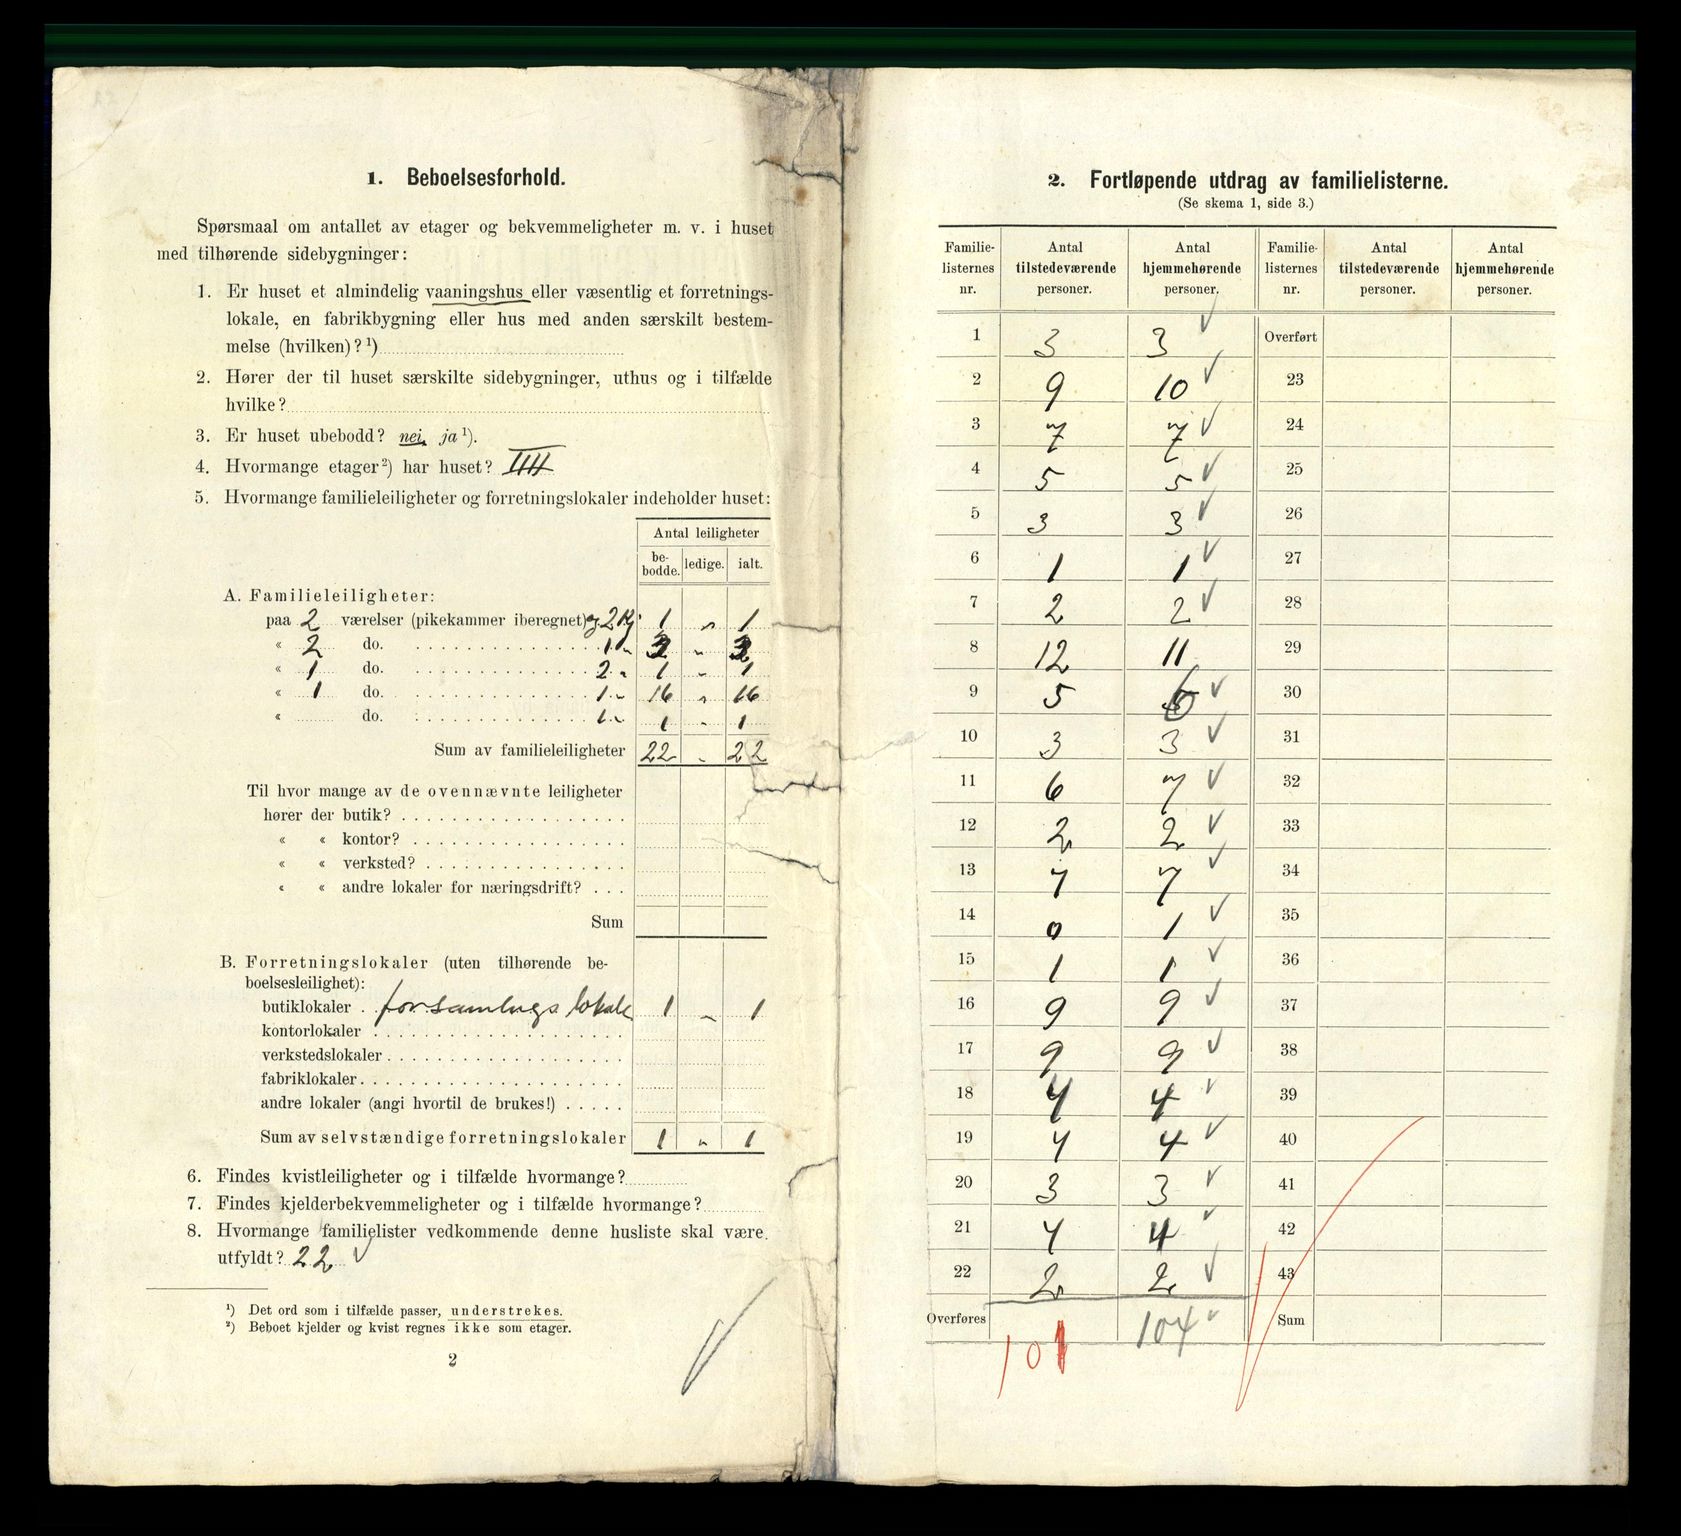 1. Beboelsesforhold.
Spørsmaal om antallet av etager og bekvemmeligheter m. v. i huset
med tilhørende sidebygninger:
1. Er huset et almindelig vaaningshus eller væsentlig et forretnings-
lokale, en fabrikbygning eller hus med anden særskilt bestem-
melse (hvilken)? ¹)
2. Hører der til huset særskilte sidebygninger, uthus og i tilfælde
hvilke?
3. Er huset ubebodd? nei, ja ¹).
4. Hvormange etager ²) har huset? IIII
5. Hvormange familieleiligheter og forretningslokaler indeholder huset:
Antal leiligheter
be-
bodde. ledige. ialt.
A. Familieleiligheter:
paa 2 værelser (pikekammer iberegnet) og 2 Kj. 1 „ 1
« 2 do. 1 „ 3 „ 3
« 1 do. 2 „ 1 „ 1
« 1 do. 1 „ 16 „ 16
« do. 1 „ 1 „ 1
Sum av familieleiligheter 22 „ 22
Til hvor mange av de ovennævnte leiligheter
hører der butik?
« « kontor?
« « verksted?
« « andre lokaler for næringsdrift?
Sum
B. Forretningslokaler (uten tilhørende be-
boelsesleilighet):
butiklokaler forsamlings lokale 1 „ 1
kontorlokaler
verkstedslokaler
fabriklokaler
andre lokaler (angi hvortil de brukes!)
Sum av selvstændige forretningslokaler 1 „ 1
6. Findes kvistleiligheter og i tilfælde hvormange?
7. Findes kjelderbekvemmeligheter og i tilfælde hvormange?
8. Hvormange familielister vedkommende denne husliste skal være
utfyldt? 22 √
¹) Det ord som i tilfælde passer, understrekes.
²) Beboet kjelder og kvist regnes ikke som etager.
2
2. Fortløpende utdrag av familielisterne.
(Se skema 1, side 3.)
Familie-listernes nr. Antal tilstedeværende personer. Antal hjemmehørende personer. Familie-listernes nr. Antal tilstedeværende personer. Antal hjemmehørende personer.
1 3 3 √ Overført
2 9 10 √ 23
3 7 7 √ 24
4 5 5 √ 25
5 3 3 √ 26
6 1 1 √ 27
7 2 2 √ 28
8 12 11 29
9 5 6 √ 30
10 3 3 √ 31
11 6 7 √ 32
12 2 2 √ 33
13 7 7 √ 34
14 0 1 √ 35
15 1 1 √ 36
16 9 9 √ 37
17 9 9 √ 38
18 4 4 √ 39
19 4 4 √ 40
20 3 3 √ 41
21 4 4 √ 42
22 2 2 √ 43
Overføres 101 104 √ Sum